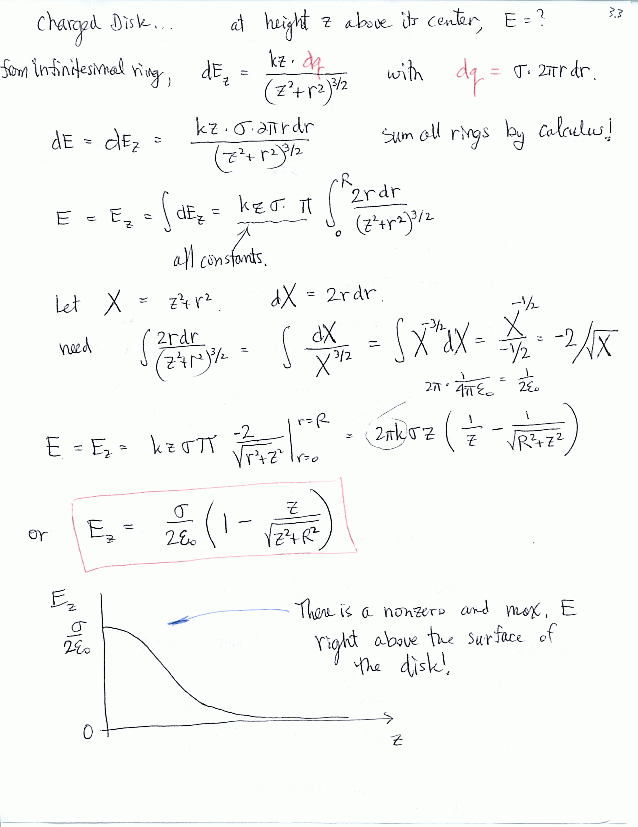 3.3
Charged Disk... at height z above its center, E = ?
from infinitesimal ring, dE_z = kz · dq / (z²+r²)^3/2 with dq = σ · 2πr dr.
dE = dE_z = kz · σ · 2πr dr / (z²+r²)^3/2 sum all rings by calculus!
E = E_z = ∫ dE_z = kzσ π ∫_0^R 2r dr / (z²+r²)^3/2
all constants.
Let X = z²+r². dX = 2r dr.
need ∫ 2r dr / (z²+r²)^3/2 = ∫ dX / X^3/2 = ∫ X^-3/2 dX = X^-1/2 / -1/2 = -2/√X
2π · 1/4πε₀ = 1/2ε₀
E = E_z = kzσπ -2/√(r²+z²) |_r=0^r=R = 2πkσz ( 1/z - 1/√(R²+z²) )
or E_z = σ/2ε₀ ( 1 - z/√(z²+R²) )
E_z
σ/2ε₀
There is a nonzero and max. E
right above the surface of
the disk!
0
z